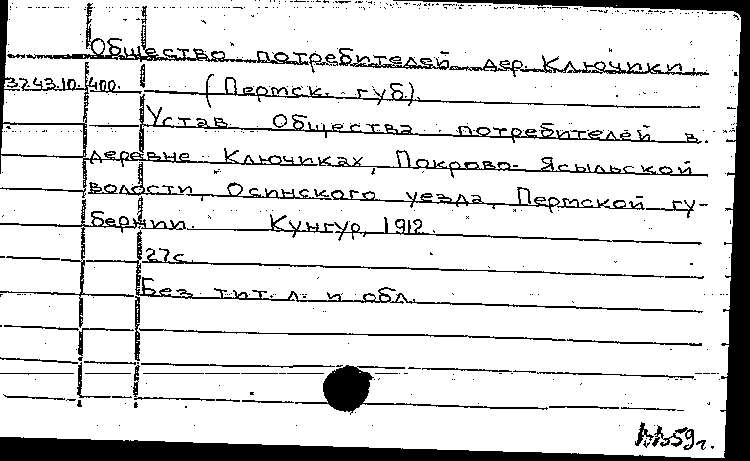 Общество потребителей дер. Ключики
3243.10. 400. (Пермск. губ.)
Устав Общества потребителей в
деревне Ключиках, Покрово-Ясыльской
волости, Осинского уезда, Пермской гу-
бернии. Кунгур, 1912.
27с
Без тит. л. и обл.
59г.